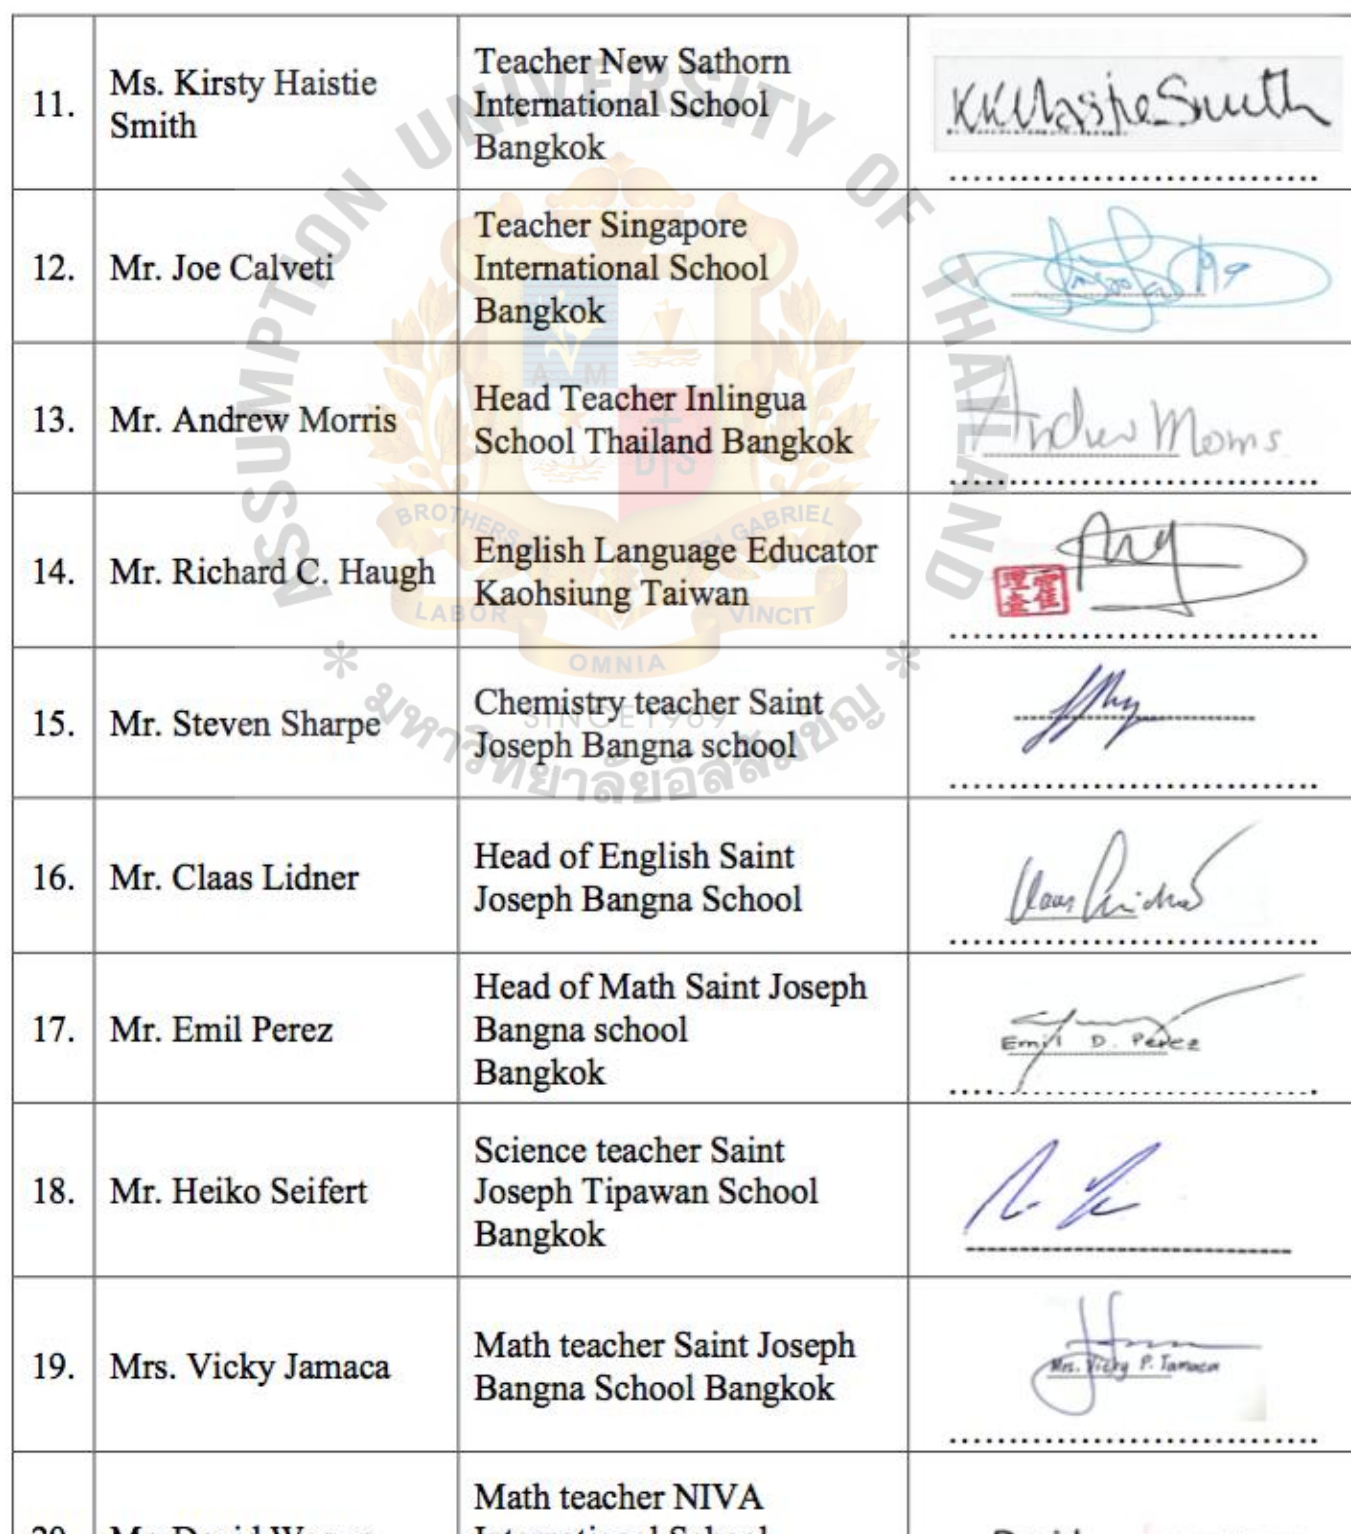 11.
Ms. Kirsty Haistie
Smith
Teacher New Sathorn
International School
Bangkok
12.
Mr. Joe Calveti
Teacher Singapore
International School
Bangkok
13.
Mr. Andrew Morris
Head Teacher Inlingua
School Thailand Bangkok
Andrew Morris
14.
Mr. Richard C. Haugh
English Language Educator
Kaohsiung Taiwan
15.
Mr. Steven Sharpe
Chemistry teacher Saint
Joseph Bangna school
16.
Mr. Claas Lidner
Head of English Saint
Joseph Bangna School
17.
Mr. Emil Perez
Head of Math Saint Joseph
Bangna school
Bangkok
Emil D. Perez
18.
Mr. Heiko Seifert
Science teacher Saint
Joseph Tipawan School
Bangkok
19.
Mrs. Vicky Jamaca
Math teacher Saint Joseph
Bangna School Bangkok
Mrs. Vicky P. Jamaca
Math teacher NIVA
International School
ASSUMPTION UNIVERSITY OF THAILAND
A M
D S
BROTHERS
GABRIEL
LABOR
VINCIT
OMNIA
SINCE1969
มหาวิทยาลัยอัสสัมชัญ